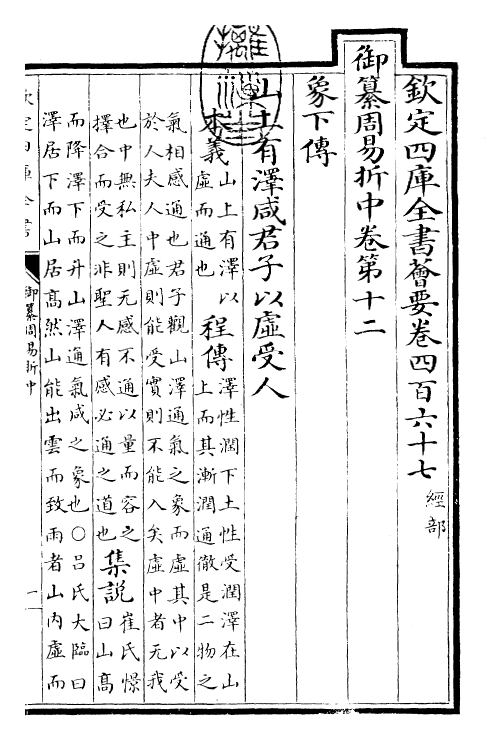 欽定四庫全書薈要卷四百六十七 經部
御纂周易折中卷第十二
象下傳
山上有澤咸君子以虛受人
本義 山上有澤以
虛而通也
程傳 澤性潤下土性受潤澤在山
上而其漸潤通徹是二物之
氣相感通也君子觀山澤通氣之象而虛其中以受
於人夫人中虛則能受實則不能入矣虛中者无我
也中無私主則无感不通以量而容之
擇合而受之非聖人有感必通之道也
集説 崔氏憬
曰山高
而降澤下而升山澤通氣咸之象也○呂氏大臨曰
澤居下而山居高然山能出雲而致雨者山内虛而
欽定四庫全書
御纂周易折中
一